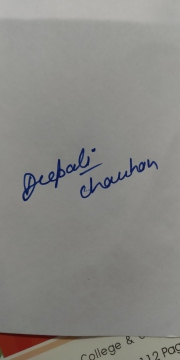 Deepali
Chauhan
College &
112 Pag